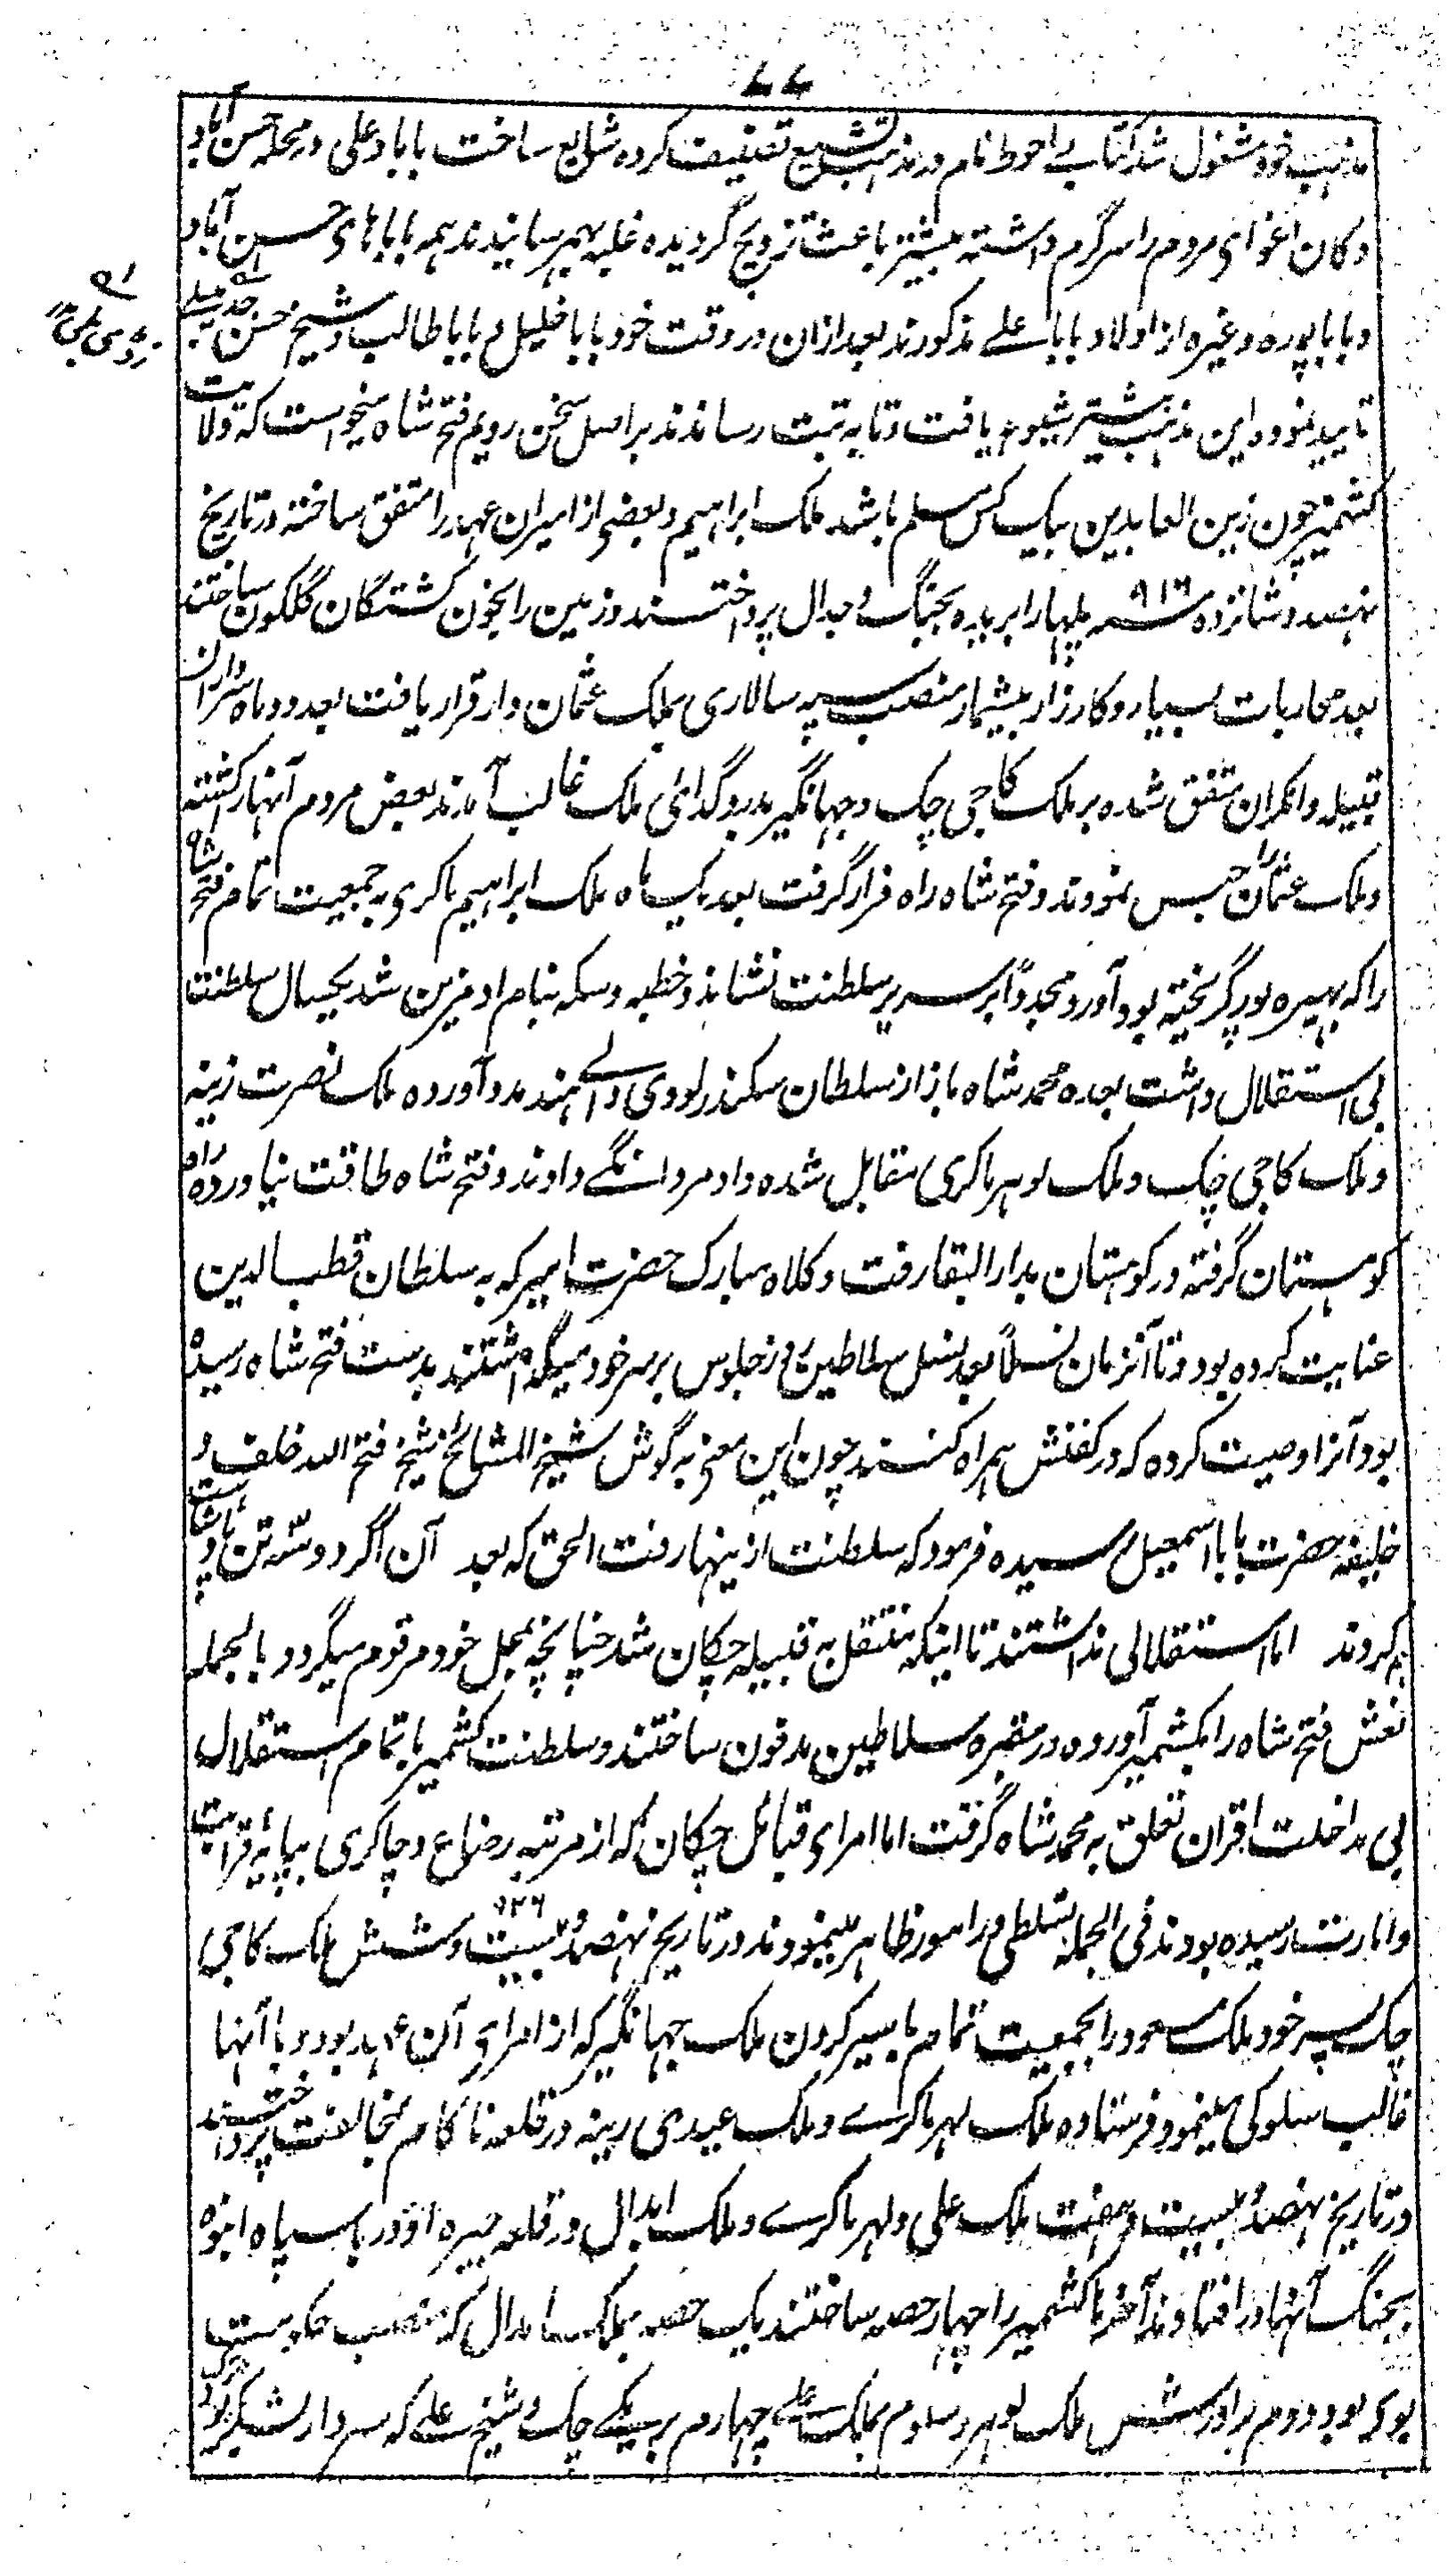 ۷۷
مذهب خود مشغول شد کتابی احوط نام در مذهب تشیع تصنیف کرده شایع ساخت بابا علی در محله حسن آباد
دکان اغوای مردم را سرگرم داشته بیشتر باعث ترویج گردیده غلبه بهم رسانیدند همه باباهای حسن آباد
و باباپوره وغیره از اولاد بابا علے مذکورند بعد ازان در وقت خود بابا خلیل و بابا طالب و شیخ حسن
تایید نموده این مذهب بیشتر شیوع یافت و تا به تبت رساندند بر اصل سخن رویم فتح شاه میخواست که ولایت
کشمیر چون زین العابدین بیک کس مسلم باشد ملک ابراهیم و بعضی از امیران عهد را متفق ساخته در تاریخ
نهصد و شانزده ۹۱۶ سنه پلها را بریده بجنگ و جدال پرداختند و زمین را بخون کشتگان گلگون ساختند
بعد محاربات بسیار و کارزار بیشمار منصب سپه سالاری بملک عثمان دار قرار یافت بعد دو ماه سرداران
قبیله دانکران متفق شده بر ملک کاجی چک و جهانگیر پدرو گدای ملک غالب آمدند بعض مردم آنها را کشته
و ملک عثمان را حبس نمودند و فتح شاه راه فرار گرفت بعد یک ماه ملک ابراهیم ماکری به جمعیت تمام فتح شاه
را که بهیره پور گریخته بود آورد و مجدداً بر سریر سلطنت نشاند و خطبه و سکه بنام او مزین شد یکسال سلطنت
بی استقلال داشت بعده محمد شاه باز از سلطان سکندر لودی والے هند مدد آورده ملک نصرت زینه
و ملک کاجی چک و ملک لوهر ماکری مقابل شده داد مردانگے دادند و فتح شاه طاقت نیاورده راه
کوهستان گرفته در کوهستان بدار البقا رفت و کلاه مبارک حضرت امیر که به سلطان قطب الدین
عنایت کرده بود و تا آنزمان نسلاً بعد نسل سلاطین روز جلوس بر سر خود میگذاشتند بدست فتح شاه رسیده
بود آنرا وصیت کرده که در کفنش همراه کنند چون این معنی به گوش شیخ المشائخ شیخ فتح الله خلف و
خلیفه حضرت بابا اسمعیل رسیده فرمود که سلطنت از ینها رفت الحق که بعد آن اگر دو سه تن پادشاهت
هم کردند اما استقلالی نداشتند تا اینکه منتقل به قبیله چکان شد چنانچه بمحل خود مرقوم میگردد بالجمله
نعش فتح شاه را بکشمیر آورده در مقبره سلاطین مدفون ساختند و سلطنت کشمیر با تمام استقلال
بی مداخلت اقران تعلق به محمد شاه گرفت اما امرای قبائل چکان که از مرتبه رضاع و چاکری بپایه قرابت
و امارت رسیده بودند فی الجمله تسلطی در امور ظاهر مینمودند در تاریخ نهصد و بیست و شش ۹۲۶ ملک کاجی
چک پسر خود ملک مسعود را بجمعیت تمام با سیر کردن ملک جهانگیر که از امرای آن عهد بود و با آنها
غالب سلوکی مینمود فرستاده ملک لهر ماکرے و ملک عیدی رینه در قلعه ناکام بمخالفت پرداختند
در تاریخ نهصد و بیست و هفت ملک علی و لهر ماکرے و ملک ابدال در قلعه چیره اودر با سپاه انبوه
بجنگ آنها در افتادند آخر ما کشمیر را چهار حصه ساختند یک حصه بملک ابدال که منصب حکومت
بوی بود دوم برادرش ملک لوهر و سوم بملک علے چهارم بریکے چک و شیخ علے که سردار لشکر بود